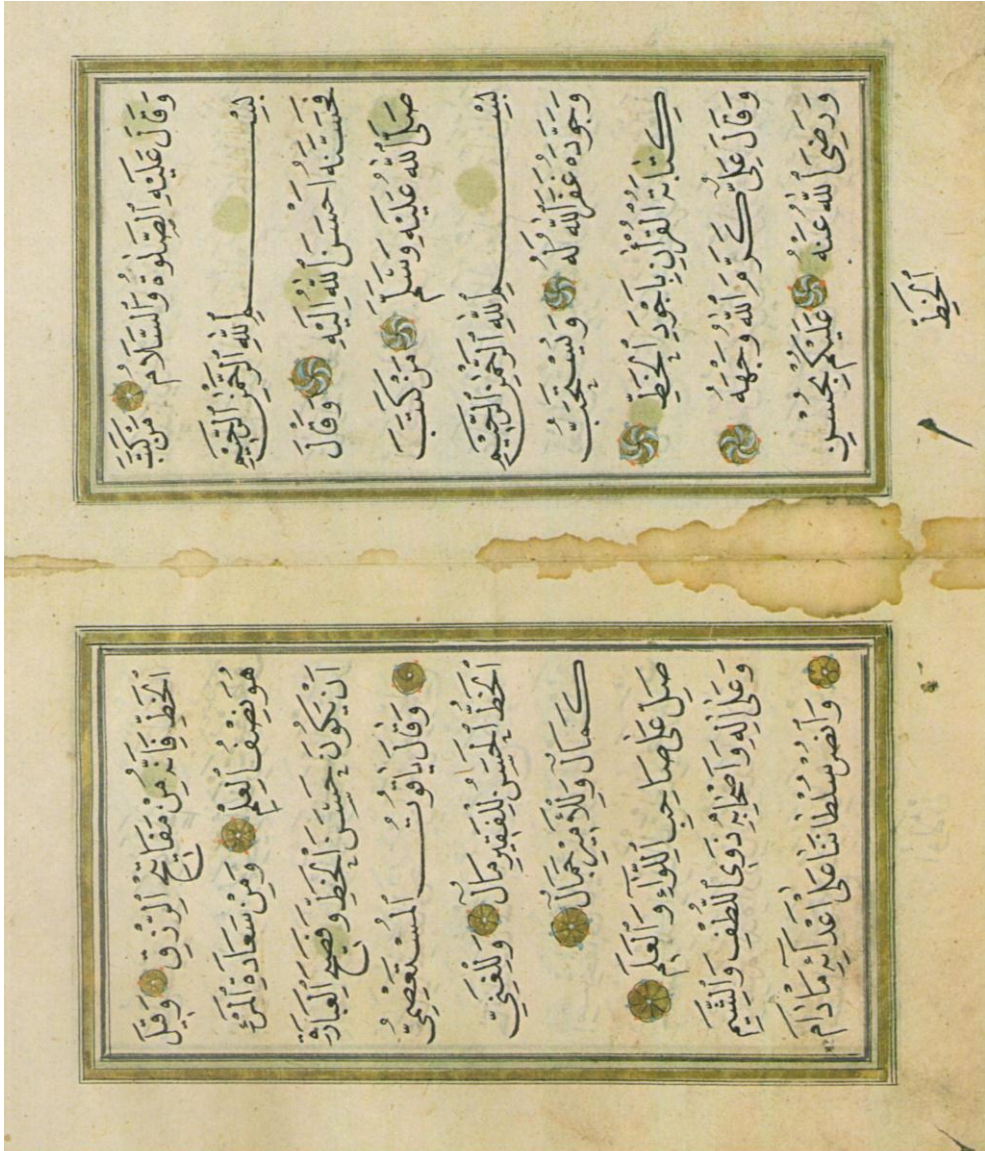 وَقَالَ عَلَيْهِ الصَّلٰوةُ وَالسَّلَامُ مَنْ كَتَبَ
بِسْمِ اللّٰهِ الرَّحْمٰنِ الرَّحِيْمِ
فَحَسَّنَهُ اَحْسَنَ اللّٰهُ اِلَيْهِ وَقَالَ
صَلَّى اللّٰهُ عَلَيْهِ وَسَلَّمَ مَنْ كَتَبَ
بِسْمِ اللّٰهِ الرَّحْمٰنِ الرَّحِيْمِ
وَجَوَّدَهُ غَفَرَ اللّٰهُ لَهُ وَيُسْتَحَبُّ
كِتَابَةُ الْقُرْاٰنِ بِاَجْوَدِ الْخَطِّ
وَقَالَ عَلِىٌّ كَرَّمَ اللّٰهُ وَجْهَهُ
وَرَضِىَ اللّٰهُ عَنْهُ عَلَيْكُمْ بِحُسْنِ
الْخَطِّ
الْخَطِّ فَاِنَّهُ مِنْ مَفَاتِيْحِ الرِّزْقِ وَقِيْلَ
هُوَ نِصْفُ الْعِلْمِ وَمِنْ سَعَادَةِ الْمَرْءِ
اَنْ يَكُوْنَ حَسَنَ الْخَطِّ وَفَصِيْحَ الْعِبَارَةِ
وَقَالَ يَاقُوْتُ الْمُسْتَعْصِمِىُّ
اَلْخَطُّ الْحَسَنُ لِلْفَقِيْرِ مَالٌ وَلِلْغَنِىِّ
كَمَالٌ وَلِلْاَمِيْرِ جَمَالٌ
صَلِّ عَلٰى صَاحِبِ اللِّوَاءِ وَالْعَلَمِ
وَعَلٰى اٰلِهِ وَاَصْحَابِهِ ذَوِى اللُّطْفِ وَالشِّيَمِ
وَانْصُرْ سُلْطَانَنَا عَلٰى اَعْدَائِهِ مَادَامَ